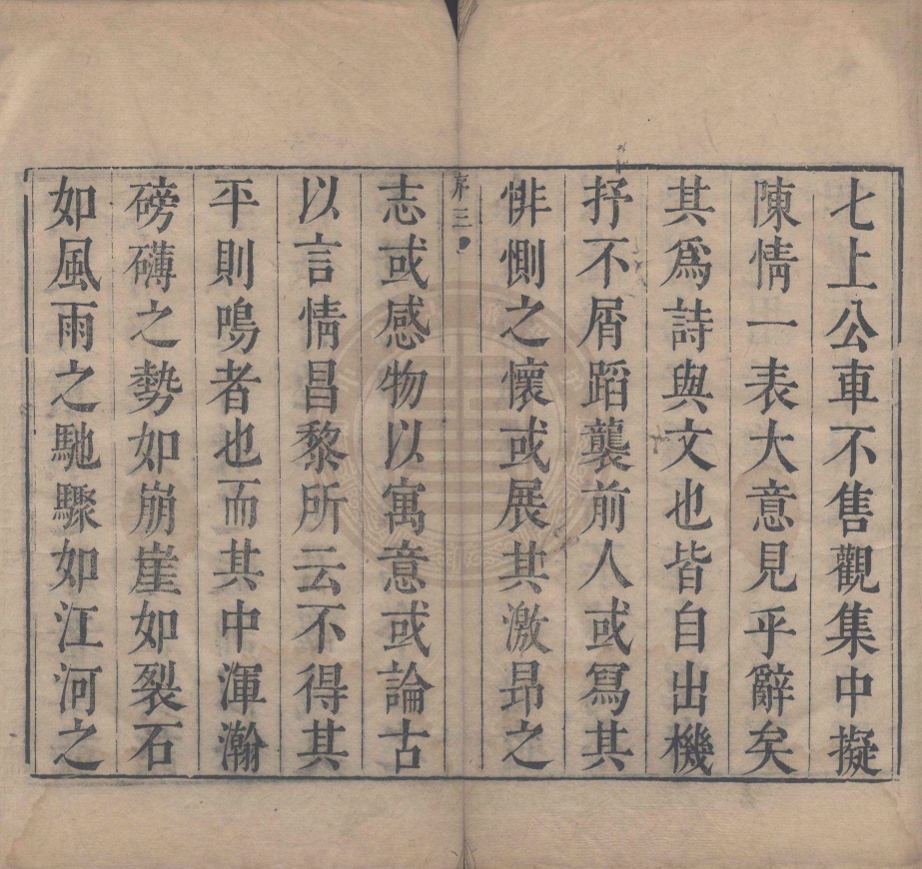 七上公車不售觀集中擬
陳情一表大意見乎辭矣
其爲詩與文也皆自出機
抒不屑蹈襲前人或寫其
悱惻之懷或展其激昂之
序三
志或感物以寓意或論古
以言情昌黎所云不得其
平則鳴者也而其中渾瀚
磅礴之勢如崩崖如裂石
如風雨之馳驟如江河之